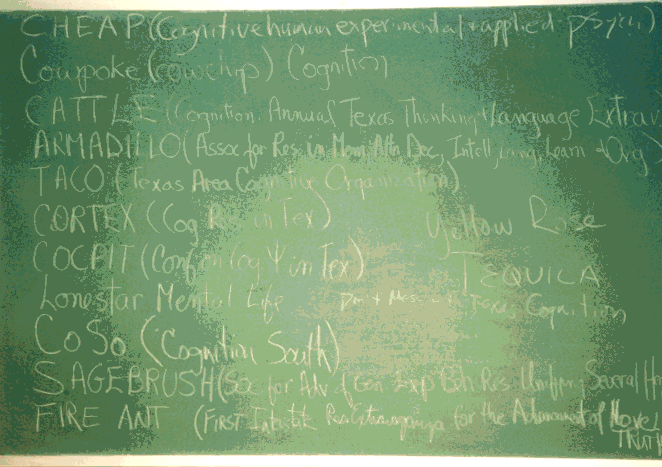 CHEAP (Cognitive human experimental & applied psych)
Cowpoke (cowchip) Cognition
CATTLE (Cognition Annual Texas Thinking & Language Extrav
ARMADILLO (Assoc for Res. in Mem, Attn, Dec, Intell, Lang, Learn & Org)
TACO (Texas Area Cognitive Organization)
CORTEX (Cog Res in Tex)
Yellow Rose
COCPIT (Conf on Cog Ψ in Tex)
TEQUILA
Lonestar Mental Life
Texas Cognition
CoSo (Cognition South)
SAGEBRUSH (Soc for Adv of Gen Exp Beh Res Several
FIRE ANT (First Extravaganza for the Advancement of Novel